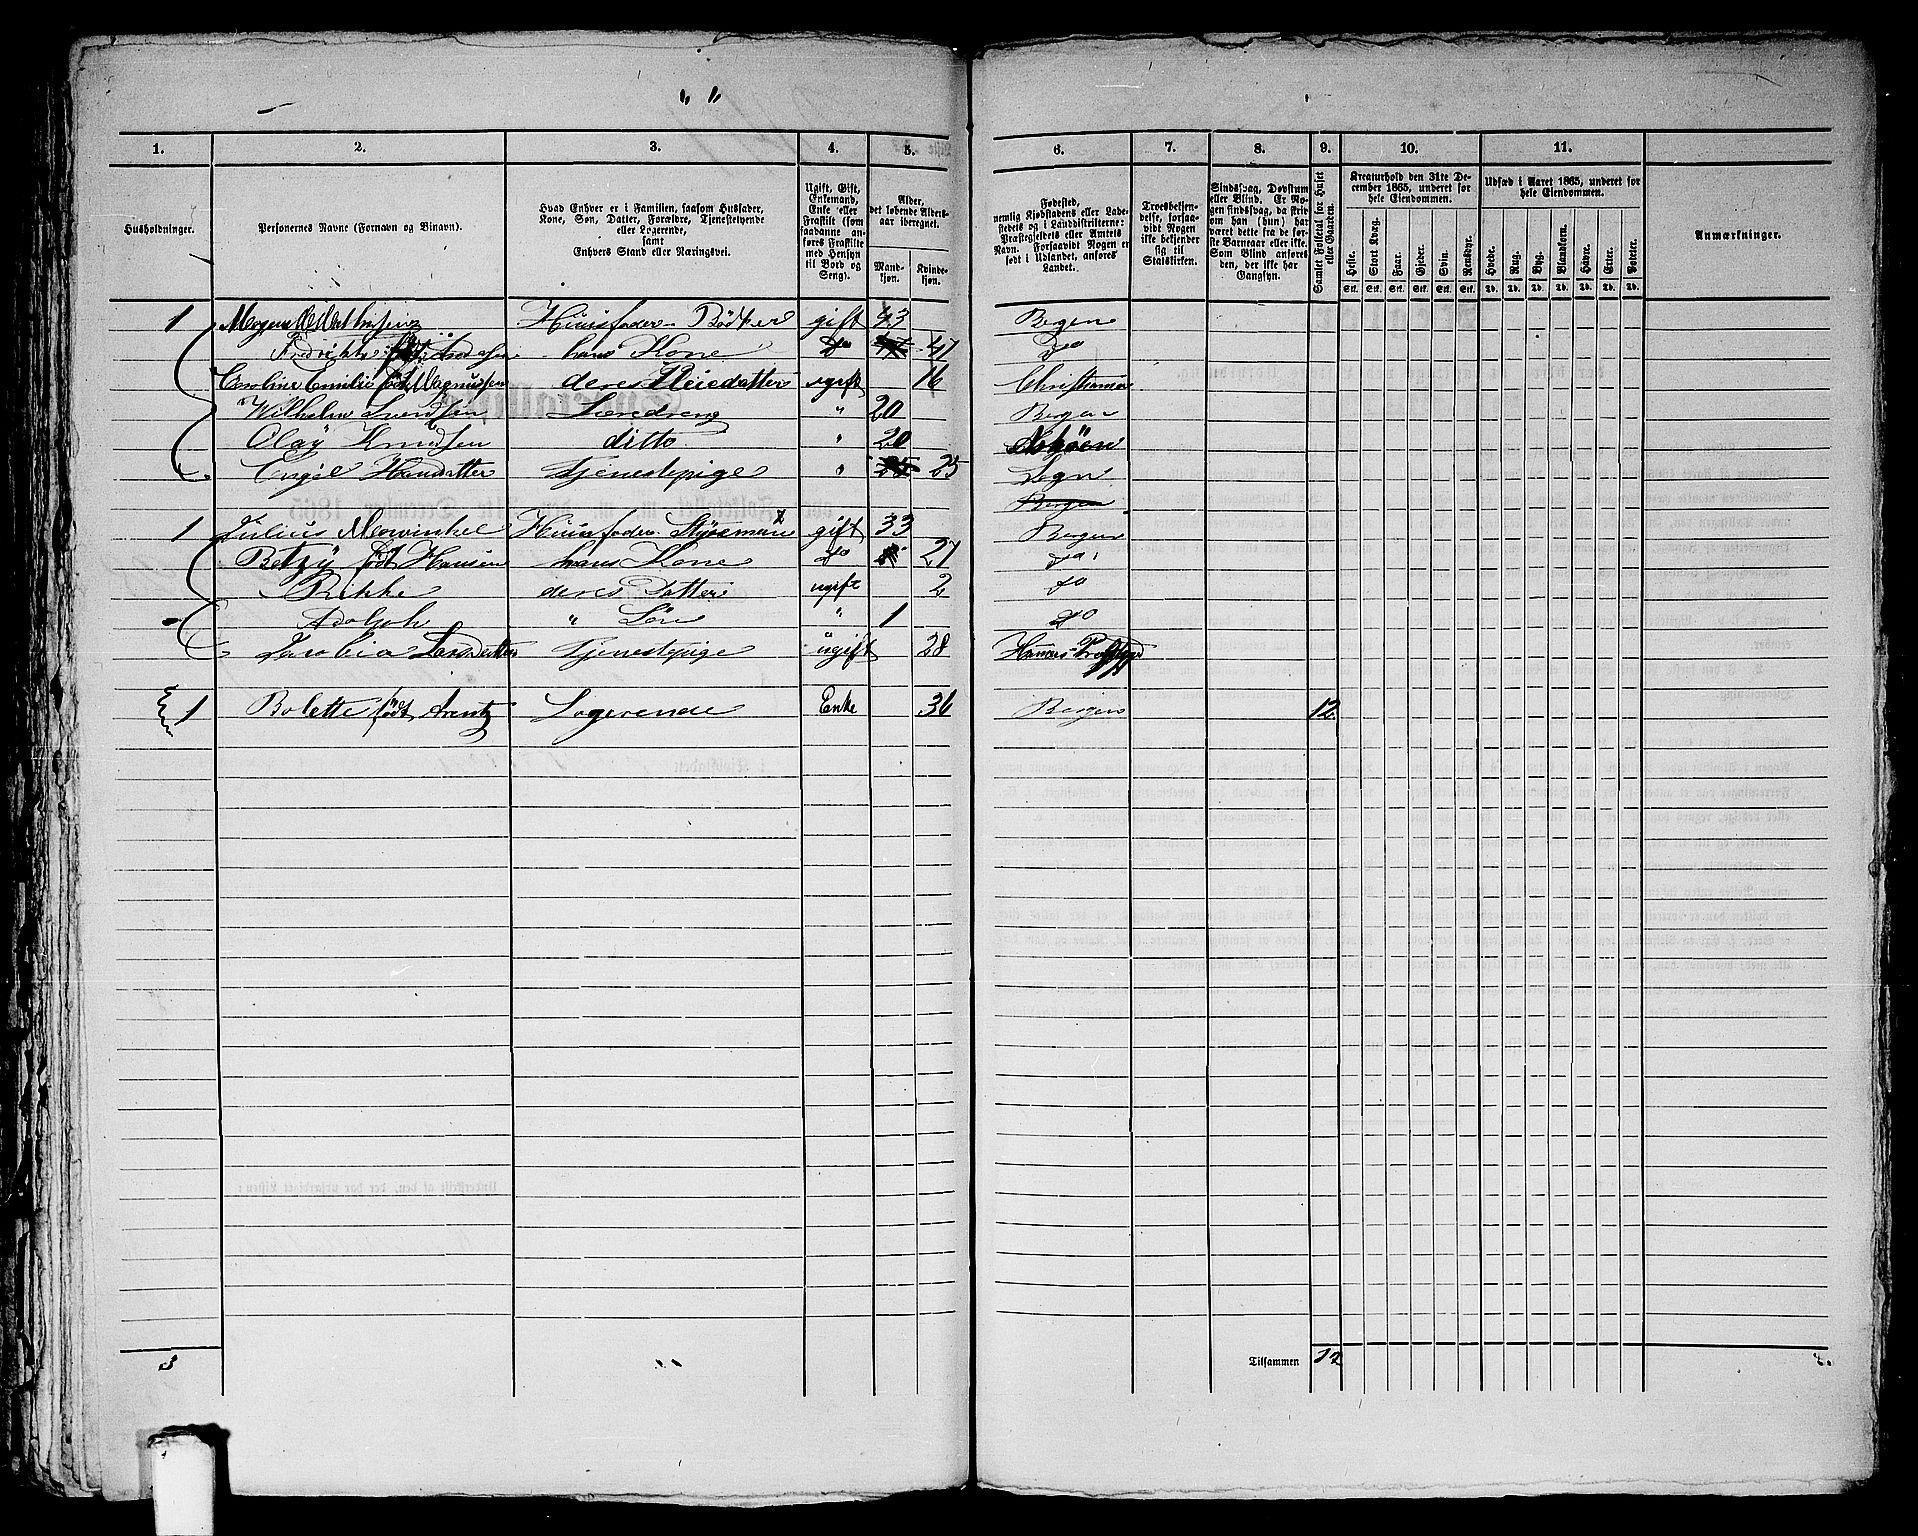 " "
1. 2. 3. 4. 5. 6. 7. 8. 9. 10. 11.
Husholdninger.
Personernes Navne (Fornavn og Binavn).
Hvad Enhver er i Familien, saasom Husfader,
Kone, Søn, Datter, Forældre, Tjenestetyende
eller Logerende,
samt
Enhvers Stand eller Næringsvei.
Ugift, Gift,
Enkemand,
Enke eller
Fraskilt (som
saadanne an-
føres Fraskilte
med Hensyn
til Bord og
Seng).
Alder,
det løbende Alders-
aar iberegnet.
Mand-
kjøn.
Kvinde-
kjøn.
Fødested,
nemlig Kjøbstadens eller Lade-
stedets og i Landdistrikterne:
Præstegjeldets eller Amtets
Navn. Forsaavidt Nogen er
født i Udlandet, anføres
Landet.
Troesbekjen-
delse, forsaa-
vidt Nogen
ikke bekjender
sig til
Statskirken.
Sindssvag, Døvstum
eller Blind. Er No-
gen sindssvag, da skriv
om han (hun) har
været dette fra de før-
ste Barneaar eller ikke.
Som Blind anføres
den, der ikke har
Gangsyn.
Samlet Folketal for Huset
eller Gaarden.
Kreaturhold den 31te De-
cember 1865, underet for
hele Eiendommen.
Heste. Stort Kvæg. Faar. Gjeder. Svin. Rensdyr.
Stk. Stk. Stk. Stk. Stk. Stk.
Udsæd i Aaret 1865, underet for
hele Eiendommen.
Hvede. Rug. Byg. Blandkorn. Havre. Erter. Poteter.
Td. Td. Td. Td. Td. Td. Td.
Anmærkninger.
1 Husfader Bødker gift 43 Bergen
hans Kone do 47 do
Caroline Emilie født Magnussen deres Pleiedatter ugift 16 Christiansund
Wilhelm Læredreng " 20 Bergen
Olaj Knudsen ditto " 20 Askøen
Engel Hansdatter Tjenestepige " 25 Sogn
Bergen
1 Julius Mowinckel Huusfader Styrmand gift 33 Bergen
Betzy født Hansen hans Kone do 27 do
Rikke deres Datter ugift 2 do
Adolph " Søn " 1 do
Jacobia Larsdatter Tjenestepige ugift 28
1 Bolette født Arentz Logerende Enke 36 Bergen 12
3 Tilsammen 12